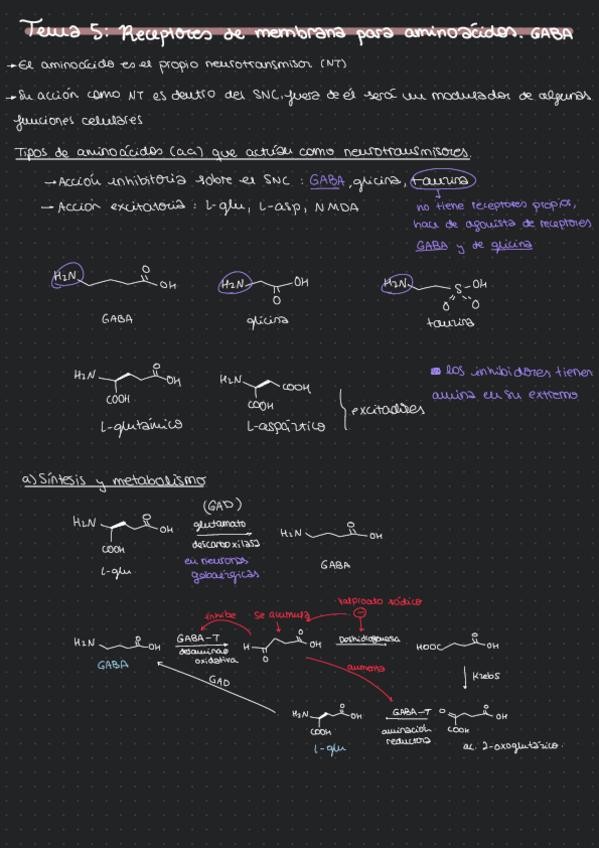 Tema 5: Receptores de membrana para aminoácidos. GABA
→ El aminoácido es el propio neurotransmisor (NT)
→ Su acción como NT es dentro del SNC, fuera de él será un modulador de algunas
funciones celulares
Tipos de aminoácidos (aa) que actúan como neurotransmisores.
→ Acción inhibitoria sobre el SNC: GABA, glicina, taurina
→ Acción excitatoria: L-glu, L-asp, NMDA
no tiene receptores propios,
hace de agonista de receptores
GABA y de glicina
H2N O OH
GABA
H2N OH O
glicina
H2N S-OH O O
taurina
H2N O OH COOH
L-glutámico
H2N COOH COOH
L-aspártico
excitadores
los inhibidores tienen
amina en su extremo
a) Síntesis y metabolismo
H2N O OH COOH
L-glu
(GAD)
glutamato
descarboxilasa
en neuronas
gabaérgicas
H2N O OH
GABA
inhibe
se acumula
valproato sódico
H2N O OH
GABA
GABA-T
desaminac
oxidativa
H O O OH
Deshidrogenasa
HOOC O OH
aumenta
Krebs
GAD
H2N O OH COOH
L-glu
GABA-T
aminación
reductora
O O OH COOH
ac. 2-oxoglutárico.